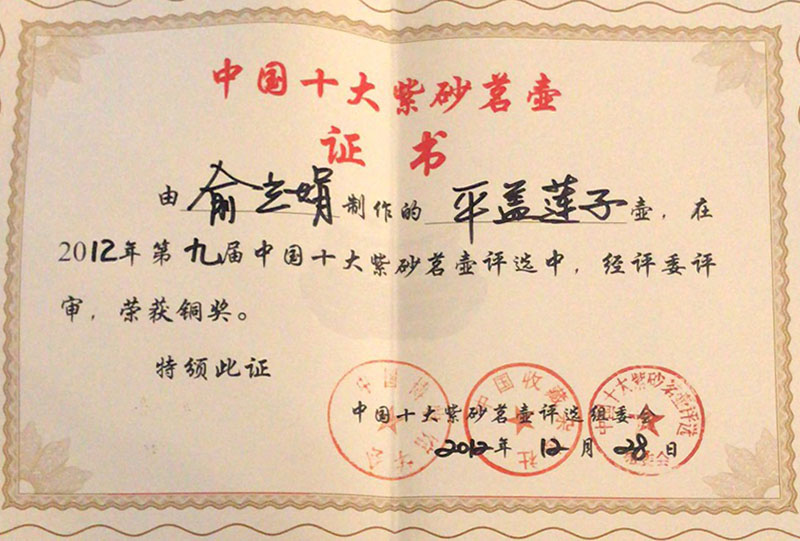 中国十大紫砂茗壶
证书
由俞志娟制作的平盖莲子壶，在
2012年第九届中国十大紫砂茗壶评选中，经评委评
审，荣获铜奖。
特颁此证
中国十大紫砂茗壶评选组委会
2012年12月28日
中国收藏杂
社
中国十大紫砂茗壶评选